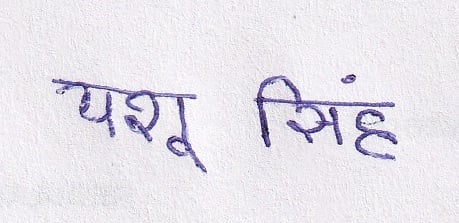 यशू सिंह